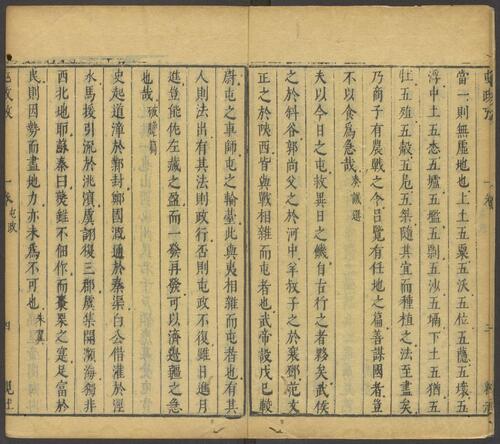 當一則無虛地也上土五粟五沃五位五隱五壤五
浮中土五怸五壚五壏五剽五沙五塥下土五猶五
壯五殖五觳五舄五桀隨其宜而種植之法至盡矣
乃商子有農戰之令呂覽有任地之篇善謀國者豈
不以食為急哉
夫以今日之屯較異日之
自古行之者夥矣武侯
之於斜谷郭尚父之於河中羊叔子之於襄鄧范文
正之於陝西皆與戰相雜而屯者也武帝設戊己校
尉屯之車師屯之輪臺此與夷相雜而屯者也有其
人則法出有其法則政行否則屯政不復雖日進月
進豈能佐左藏之盈而一發再發可以濟邊疆之急
也哉
史起道漳於鄴封鄒國溉通於秦渠白公借灌於涇
水馬援引流於洮濱虞詡復三郡虞集開瀕海獨非
西北地耶蘇秦曰燕雖不佃作而棗栗之寔足富於
民則因勢而盡地力亦未為不可也
朱翼
屯政考
一卷
屯政
四